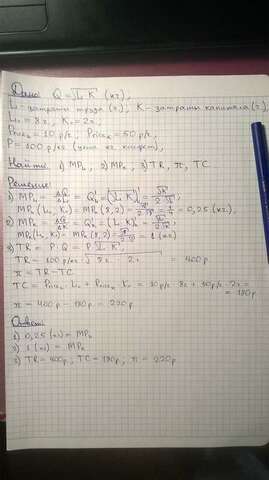 Дано: Q = √L·K (кг),
L - затраты труда (ч), K - затраты капитала (ч).
L₀ = 8ч, K₀ = 2ч,
10 р/ч, 50 р/ч,
P = 100 р/кг (цена кг. конфет),
Найти: 1) MPL, 2) MPK, 3) TR, π, TC
Решение:
1) MPL = ΔQ/ΔL = Q'L = (√L·K)'L = √K/2√L;
MPL (L₀, K₀) = MPL (8,2) = √2/2√8 = 1/4 = 0,25 (кг),
2) MPK = ΔQ/ΔK = Q'K = (√L·K)'K = √L/2√K;
MPK (L₀, K₀) = MPK (8,2) = √8/2√2 = 1 (кг)
3) TR = P·Q = P√L·K,
TR = 100 р/кг · √8ч · 2ч = 400р
π = TR - TC
TC = · L₀ + · K₀ = 10 р/ч · 8ч + 50 р/ч · 2ч =
= 180р
π = 400р - 180р = 220р
Ответ:
1) 0,25 (кг) = MPL
2) 1 (кг) = MPK
3) TR = 400р, TC = 180р, π = 220р